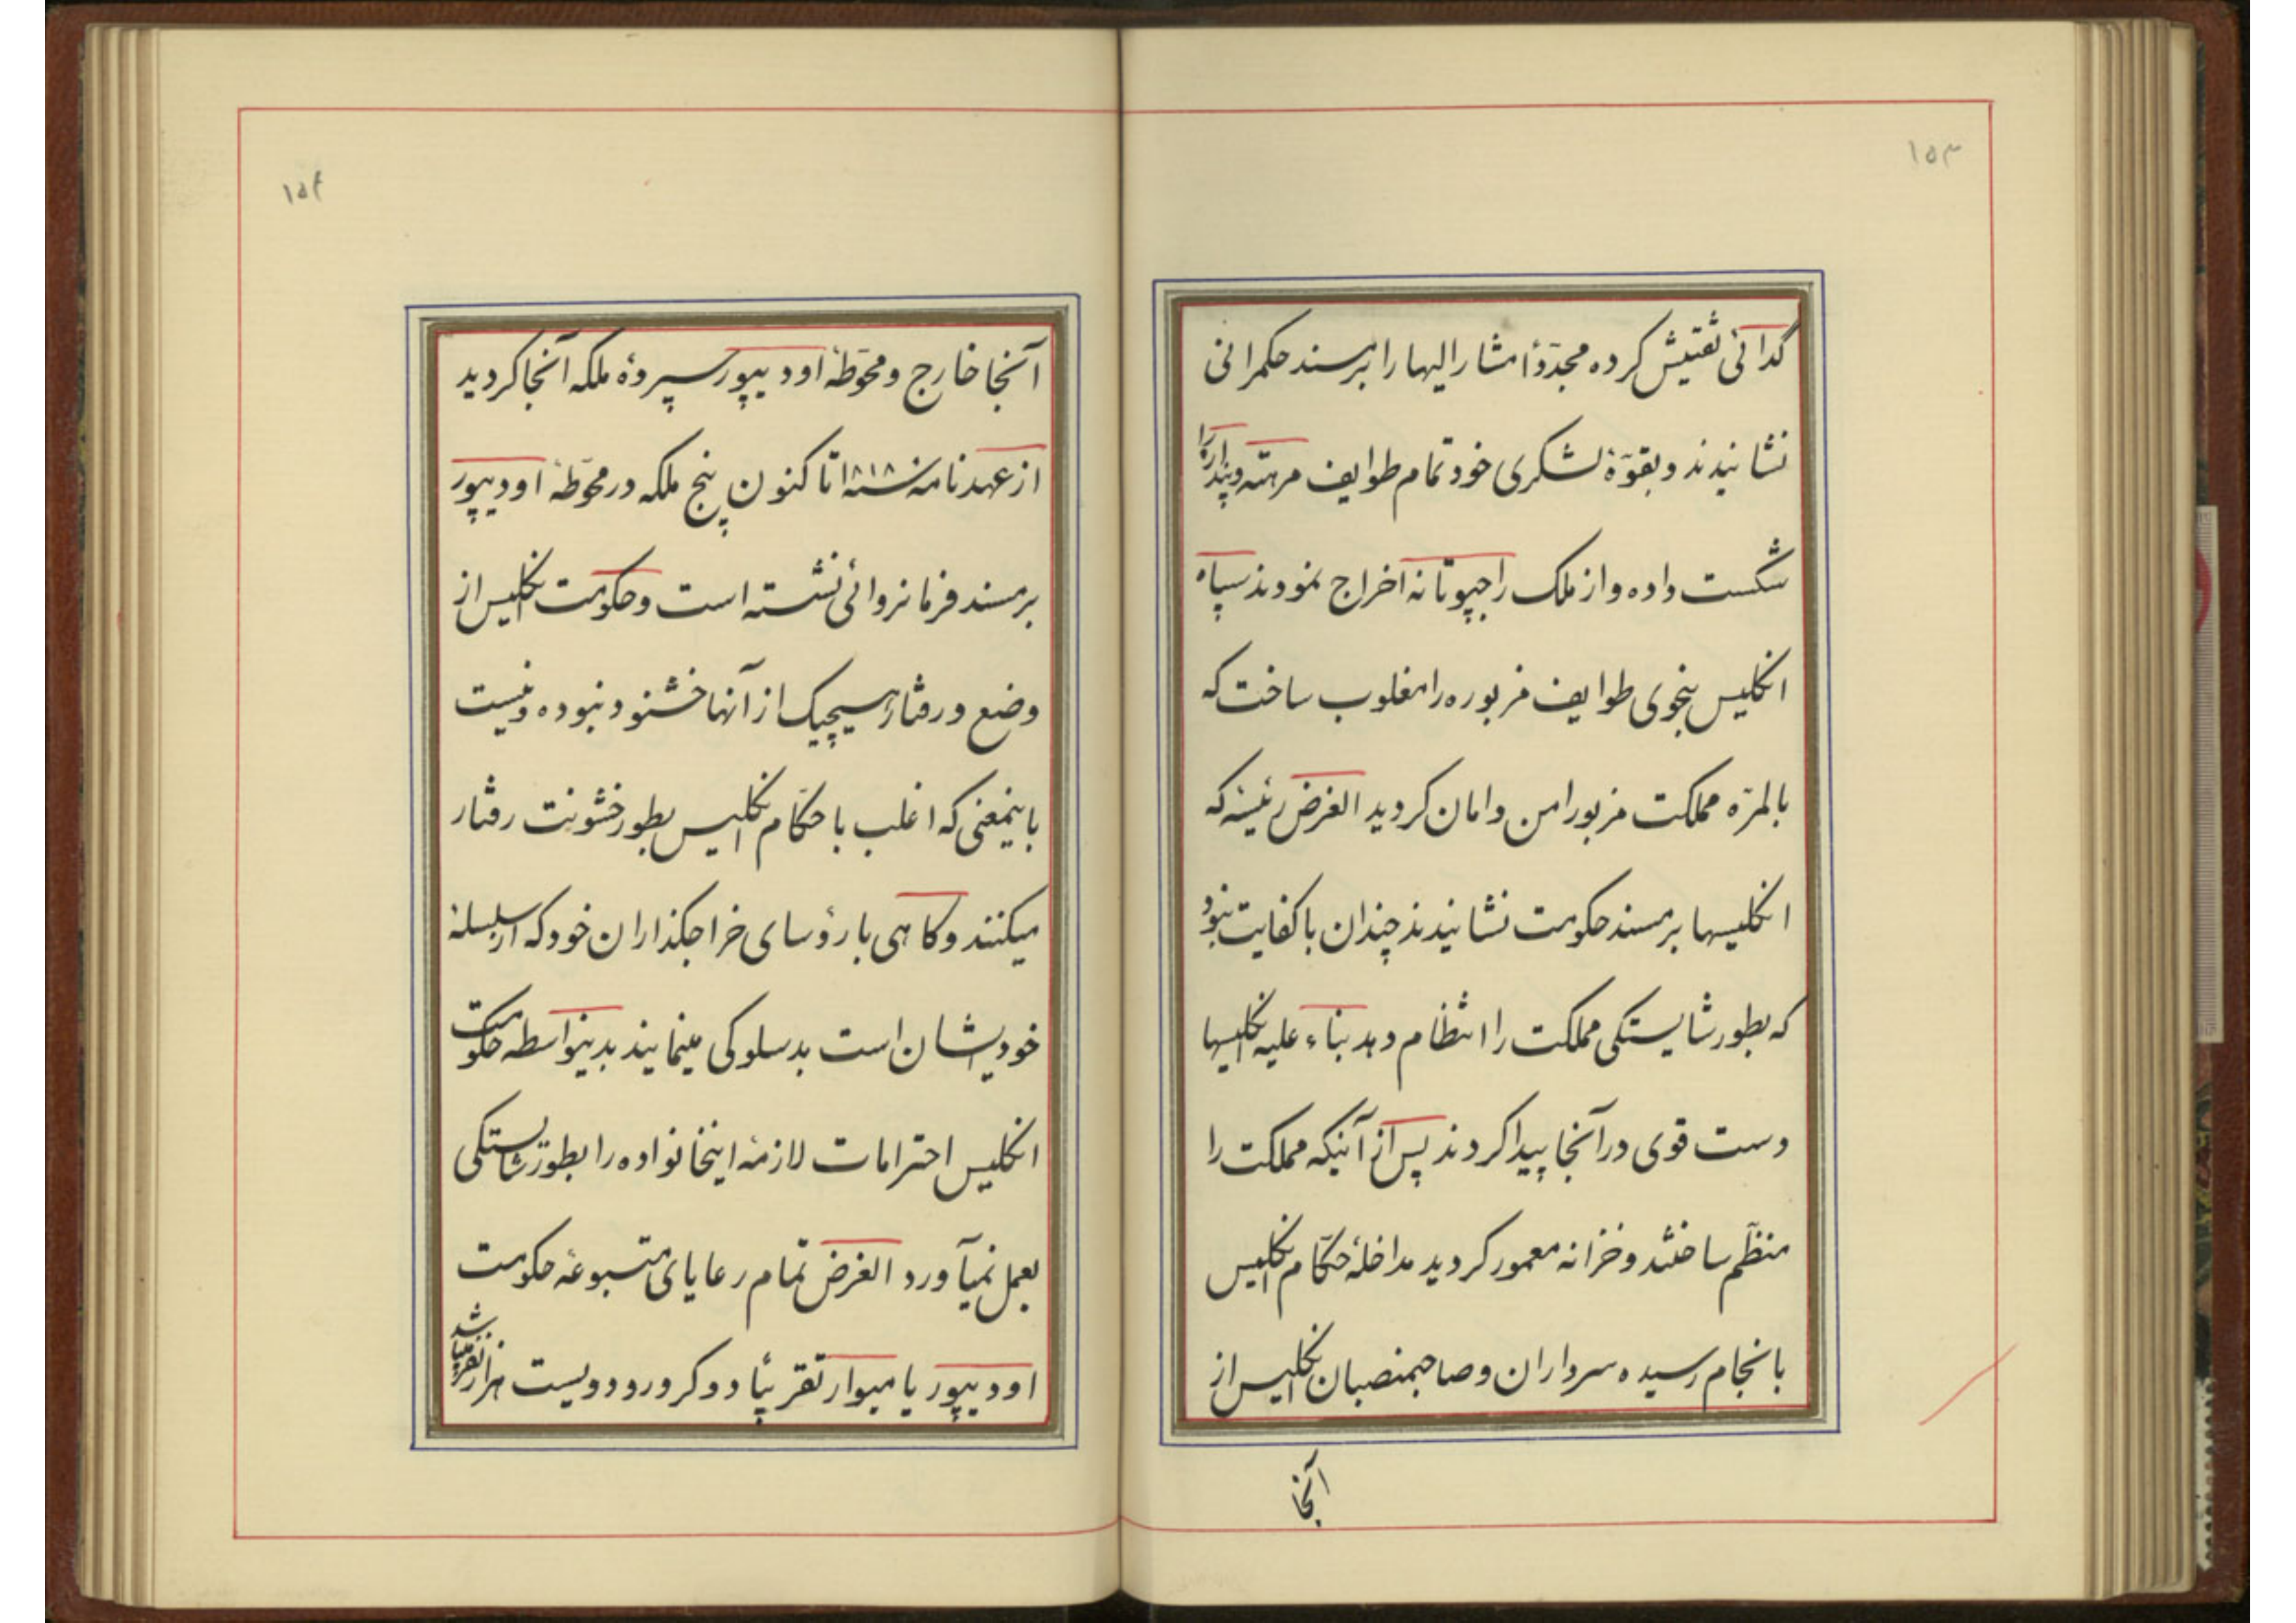 ۱۵۳
گدائی تفتیش کرده مجدّداً مشارالیها را بر مسند حکمرانی
نشانیدند و بقوّهٔ لشکری خود تمام طوایف مرهته و پنداره را
شکست داده و از ملک راجپوتانه اخراج نمودند سپاه
انکلیس بنحوی طوایف مزبوره را مغلوب ساخت که
بالمرّه مملکت مزبور امن و امان کردید الغرض رئیسهٔ که
انکلیسها بر مسند حکومت نشانیدند چندان باکفایت نبود
که بطور شایستکی مملکت را انتظام دهد بناء علیه انکلیسها
دست قوی در آنجا پیدا کردند پس از آنیکه مملکت را
منظّم ساختند و خزانه معمور کردید مداخلهٔ حکّام انکلیس
بانجام رسیده سرداران و صاحبمنصبان انکلیس از
آنجا
۱۵۴
آنجا خارج و محوّطهٔ اودیپور سپردهٔ ملکه آنجا کردید
از عهدنامهٔ سنه ۱۸۱۸ تا کنون پنج ملکه در محوّطهٔ اودیپور
بر مسند فرمانروائی نشسته است و حکومت انکلیس از
وضع و رفتار هیچیک از آنها خشنود نبوده و نیست
باینمعنی که اغلب با حکّام انکلیس بطور خشونت رفتار
میکنند و کاهی با رؤسای خراجکذاران خود که از سلسلهٔ
خودیشان است بدسلوکی مینمایند بدینواسطه حکومت
انکلیس احترامات لازمهٔ اینخانواده را بطور شایستکی
بعمل نمیآورد الغرض تمام رعایای متبوعهٔ حکومت
اودیپور یا میوار تقریباً دو کرور و دویست هزار نفر میباشد